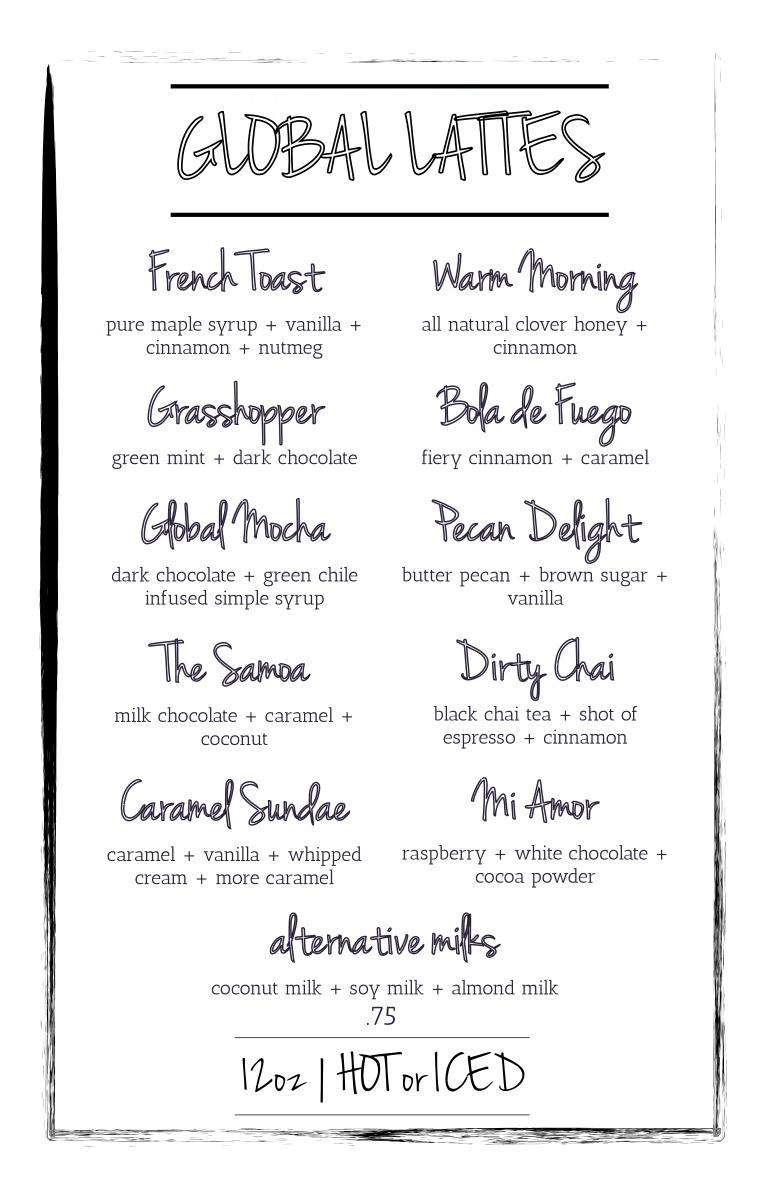 GLOBAL LATTES
French Toast
pure maple syrup + vanilla +
cinnamon + nutmeg
Warm Morning
all natural clover honey +
cinnamon
Grasshopper
green mint + dark chocolate
Bola de Fuego
fiery cinnamon + caramel
Global Mocha
dark chocolate + green chile
infused simple syrup
Pecan Delight
butter pecan + brown sugar +
vanilla
The Samoa
milk chocolate + caramel +
coconut
Dirty Chai
black chai tea + shot of
espresso + cinnamon
Caramel Sundae
caramel + vanilla + whipped
cream + more caramel
Mi Amor
raspberry + white chocolate +
cocoa powder
alternative milks
coconut milk + soy milk + almond milk
.75
12oz | HOT or ICED